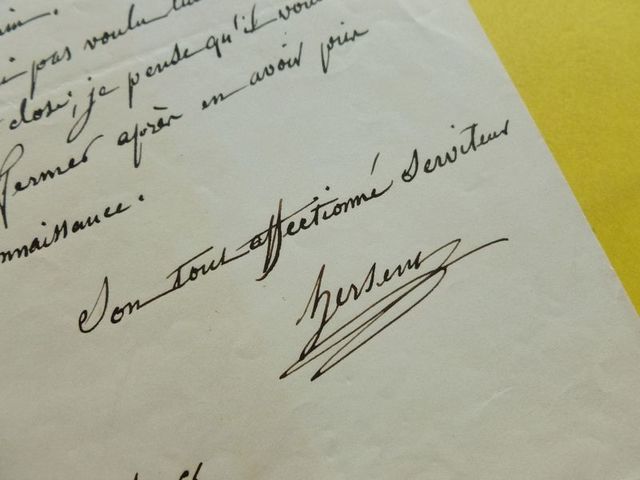 pas voulu
close, je pense qu'il vous
fermer après en avoir pris
nnaissance.
Son tout affectionné Serviteur
hersent